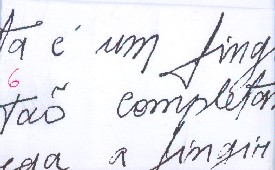 ta é um fing
6
tão completa
ega a fingir